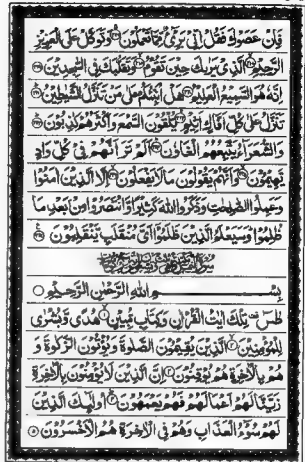 فَاِنْ عَصَوْكَ فَقُلْ اِنِّیْ بَرِیْٓءٌ مِّمَّا تَعْمَلُوْنَ ۝ وَتَوَكَّلْ عَلَی الْعَزِیْزِ
الرَّحِیْمِ ۝ الَّذِیْ یَرٰىكَ حِیْنَ تَقُوْمُ ۝ وَتَقَلُّبَكَ فِی السّٰجِدِیْنَ ۝
اِنَّهٗ هُوَ السَّمِیْعُ الْعَلِیْمُ ۝ هَلْ اُنَبِّئُكُمْ عَلٰی مَنْ تَنَزَّلُ الشَّیٰطِیْنُ ۝
تَنَزَّلُ عَلٰی كُلِّ اَفَّاكٍ اَثِیْمٍ ۝ یُّلْقُوْنَ السَّمْعَ وَاَكْثَرُهُمْ كٰذِبُوْنَ ۝
وَالشُّعَرَآءُ یَتَّبِعُهُمُ الْغَاوٗنَ ۝ اَلَمْ تَرَ اَنَّهُمْ فِیْ كُلِّ وَادٍ
یَّهِیْمُوْنَ ۝ وَاَنَّهُمْ یَقُوْلُوْنَ مَا لَا یَفْعَلُوْنَ ۝ اِلَّا الَّذِیْنَ اٰمَنُوْا
وَعَمِلُوا الصّٰلِحٰتِ وَذَكَرُوا اللّٰهَ كَثِیْرًا وَّانْتَصَرُوْا مِنْۢ بَعْدِ مَا
ظُلِمُوْا وَسَیَعْلَمُ الَّذِیْنَ ظَلَمُوْۤا اَیَّ مُنْقَلَبٍ یَّنْقَلِبُوْنَ ۝
بِسْمِ اللّٰهِ الرَّحْمٰنِ الرَّحِیْمِ ۝
طٰسٓ تِلْكَ اٰیٰتُ الْقُرْاٰنِ وَكِتَابٍ مُّبِیْنٍ ۝ هُدًی وَّبُشْرٰی
لِلْمُؤْمِنِیْنَ ۝ الَّذِیْنَ یُقِیْمُوْنَ الصَّلٰوةَ وَیُؤْتُوْنَ الزَّكٰوةَ وَ
هُمْ بِالْاٰخِرَةِ هُمْ یُوْقِنُوْنَ ۝ اِنَّ الَّذِیْنَ لَا یُؤْمِنُوْنَ بِالْاٰخِرَةِ
زَیَّنَّا لَهُمْ اَعْمَالَهُمْ فَهُمْ یَعْمَهُوْنَ ۝ اُولٰٓىِٕكَ الَّذِیْنَ
لَهُمْ سُوْٓءُ الْعَذَابِ وَهُمْ فِی الْاٰخِرَةِ هُمُ الْاَخْسَرُوْنَ ۝